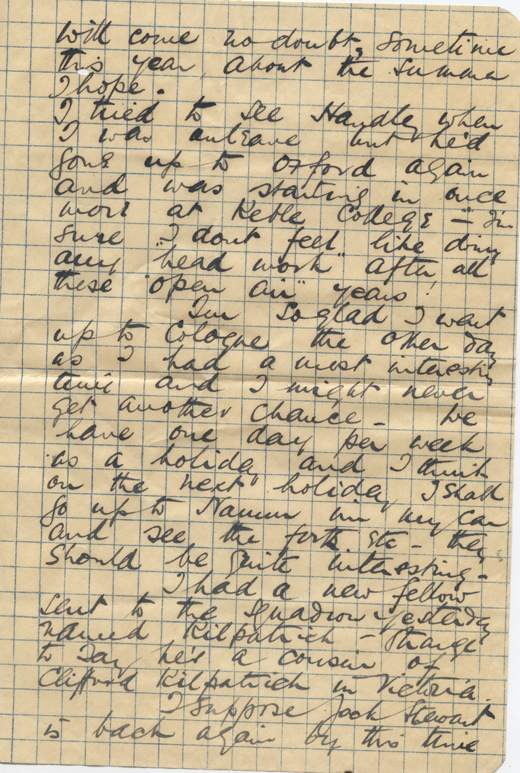 will come no doubt, sometime
this year, about the summer
I hope.
I tried to see Handley when
I was onleave but he'd
gone up to Oxford again
and was starting in once
more at Keble College - I'm
sure I dont feel like doing
any "head work" after all
these "open air" years!
I'm so glad I went
up to Cologne the other day
as I had a most interesting
time and I might never
get another chance - We
have one day per week
as a holiday and I think
on the next holiday I shall
go up to Namur in my car
and see the forts etc - they
should be quite interesting -
I had a new fellow
sent to the squadron yesterday
named Kilpatrick - strange
to say he's a cousin of
Clifford Kilpatrick in Victoria.
I suppose Jack Stewart
is back again by this time